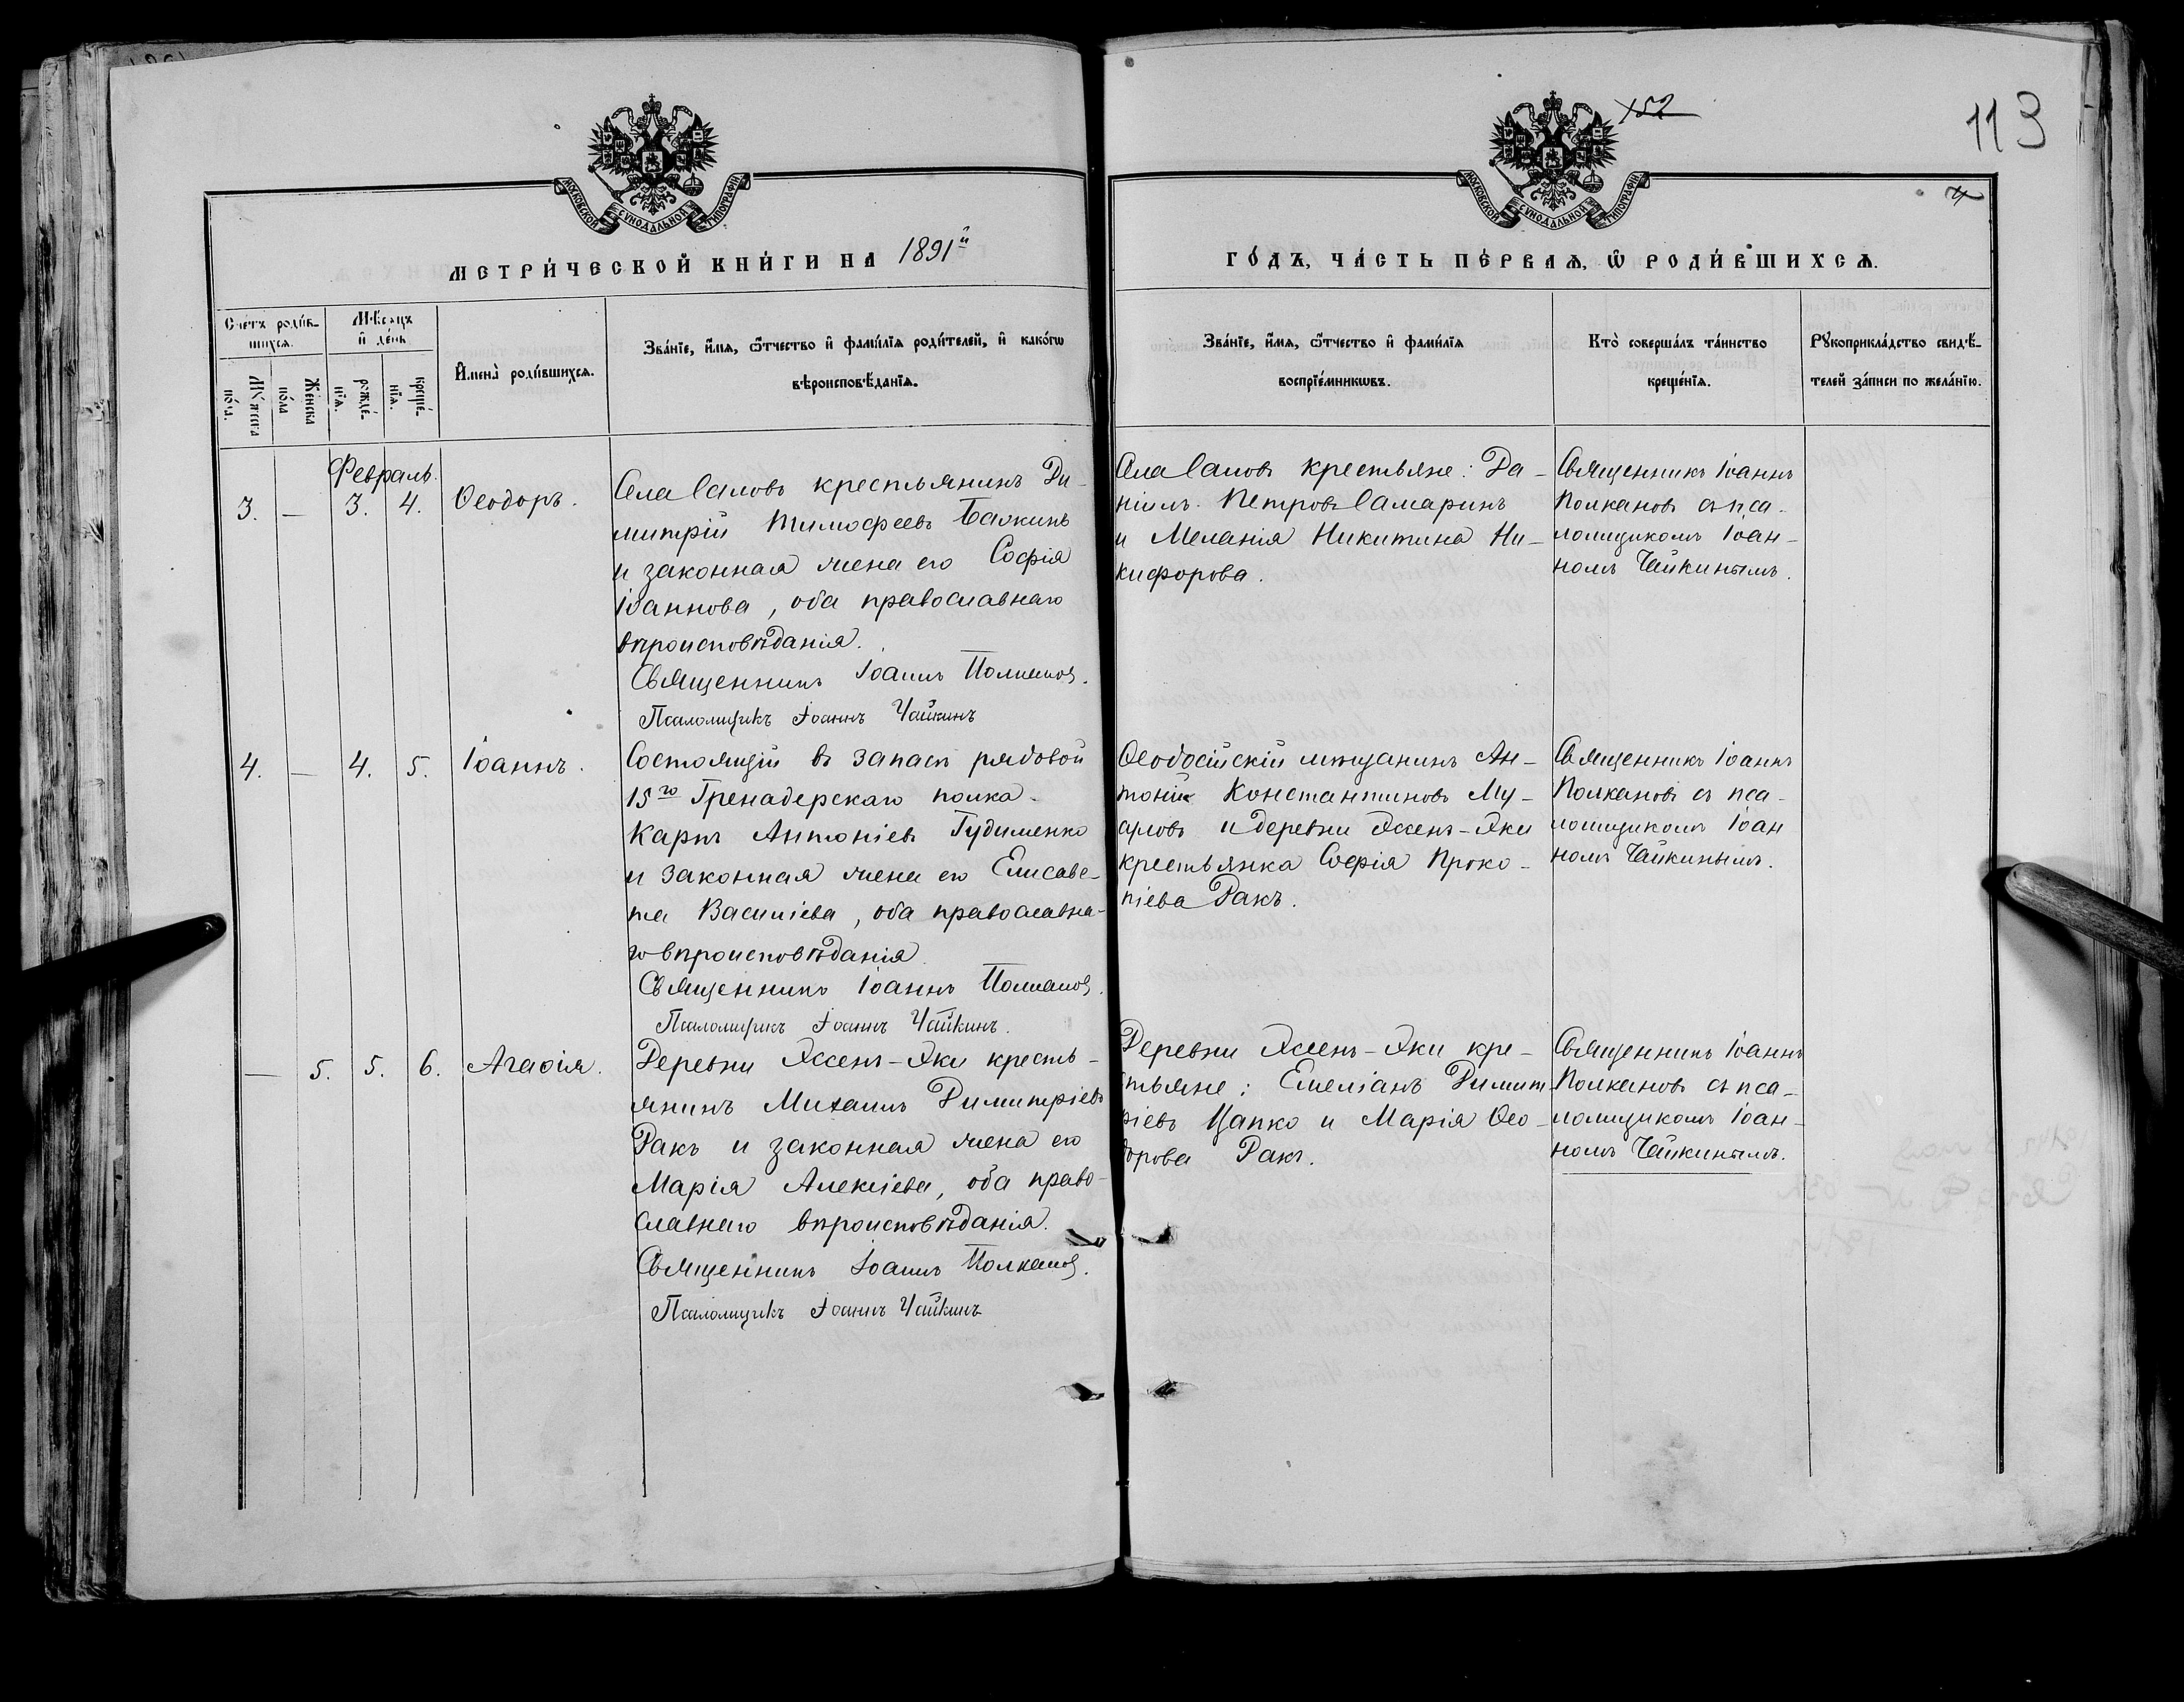 152
113
4
МОСКОВСКОЙ СУНОДАЛЬНОЙ ТИПОГРАФІИ
МОСКОВСКОЙ СУНОДАЛЬНОЙ ТИПОГРАФІИ
МЕТРИ́ЧЕСКОЙ КНИ́ГИ НА 1891й
ГО́ДЪ, ЧА́СТЬ ПЕ́РВАѦ, Ѡ҆ РОДИ́ВШИХСѦ.
Сче́тъ роди́в-
шихсѧ.
Мꙋ́жеска по́ла.
Же́нска по́ла
Мѣ́сѧцъ
и҆ де́нь
рожде́-
нїѧ.
креще́-
нїѧ.
И҆мена̀ роди́вшихсѧ.
Зва́нїе, и҆́мѧ, ѻ҆́тчество и҆ фами́лїѧ роди́телей, и҆ како́гѡ
вѣроисповѣ́данїѧ.
Зва́нїе, и҆́мѧ, ѻ҆́тчество и҆ фами́лїѧ
воспрїе́мникѡвъ.
Кто̀ соверша́лъ та́инство
креще́нїѧ.
Рꙋкоприкла́дство свидѣ́-
телей за́писи по жела́нїю.
Февраль.
3. — 3. 4. Ѳеодоръ.
Села Саловъ крестьянинъ Ди-
митрій Тимофеевъ Балкинъ
и законная жена его Софія
Іоаннова, оба православнаго
вѣроисповѣданія.
Священникъ Іоаннъ Полкановъ.
Псаломщикъ Іоаннъ Чайкинъ
Села Саловъ крестьяне: Да-
ніилъ Петровъ Самаринъ
и Меланія Никитина Ни-
кифорова.
Священникъ Іоаннъ
Полкановъ съ пса-
ломщикомъ Іоан-
номъ Чайкинымъ.
4. — 4. 5. Іоаннъ.
Состоящій въ запасѣ рядовой
15го Гренадерскаго полка
Карпъ Антоніевъ Гудименко
и законная жена его Елисаве-
та Василіева, оба православна-
го вѣроисповѣданія
Священникъ Іоаннъ Полкановъ.
Псаломщикъ Іоаннъ Чайкинъ.
Ѳеодосійскій мѣщанинъ Ан-
тоній Константиновъ Му-
and деревни Джень-Яки
крестьянка Софія Проко-
піева Ракъ.
Священникъ Іоаннъ
Полкановъ съ пса-
ломщикомъ Іоан
номъ Чайкинымъ.
— 5. 5. 6. Агаѳія.
Деревни Джень-Яки кресть-
янинъ Михаилъ Димитріевъ
Ракъ и законная жена его
Марія Алексіева, оба право-
славнаго вѣроисповѣданія.
Священникъ Іоаннъ Полкановъ.
Псаломщикъ Іоаннъ Чайкинъ
Деревни Джень-Яки кре-
стьяне: Емеліанъ Димит-
ріевъ Цапко и Марія Ѳео-
дорова Ракъ.
Священникъ Іоаннъ
Полкановъ съ пса-
ломщикомъ Іоан-
номъ Чайкинымъ.